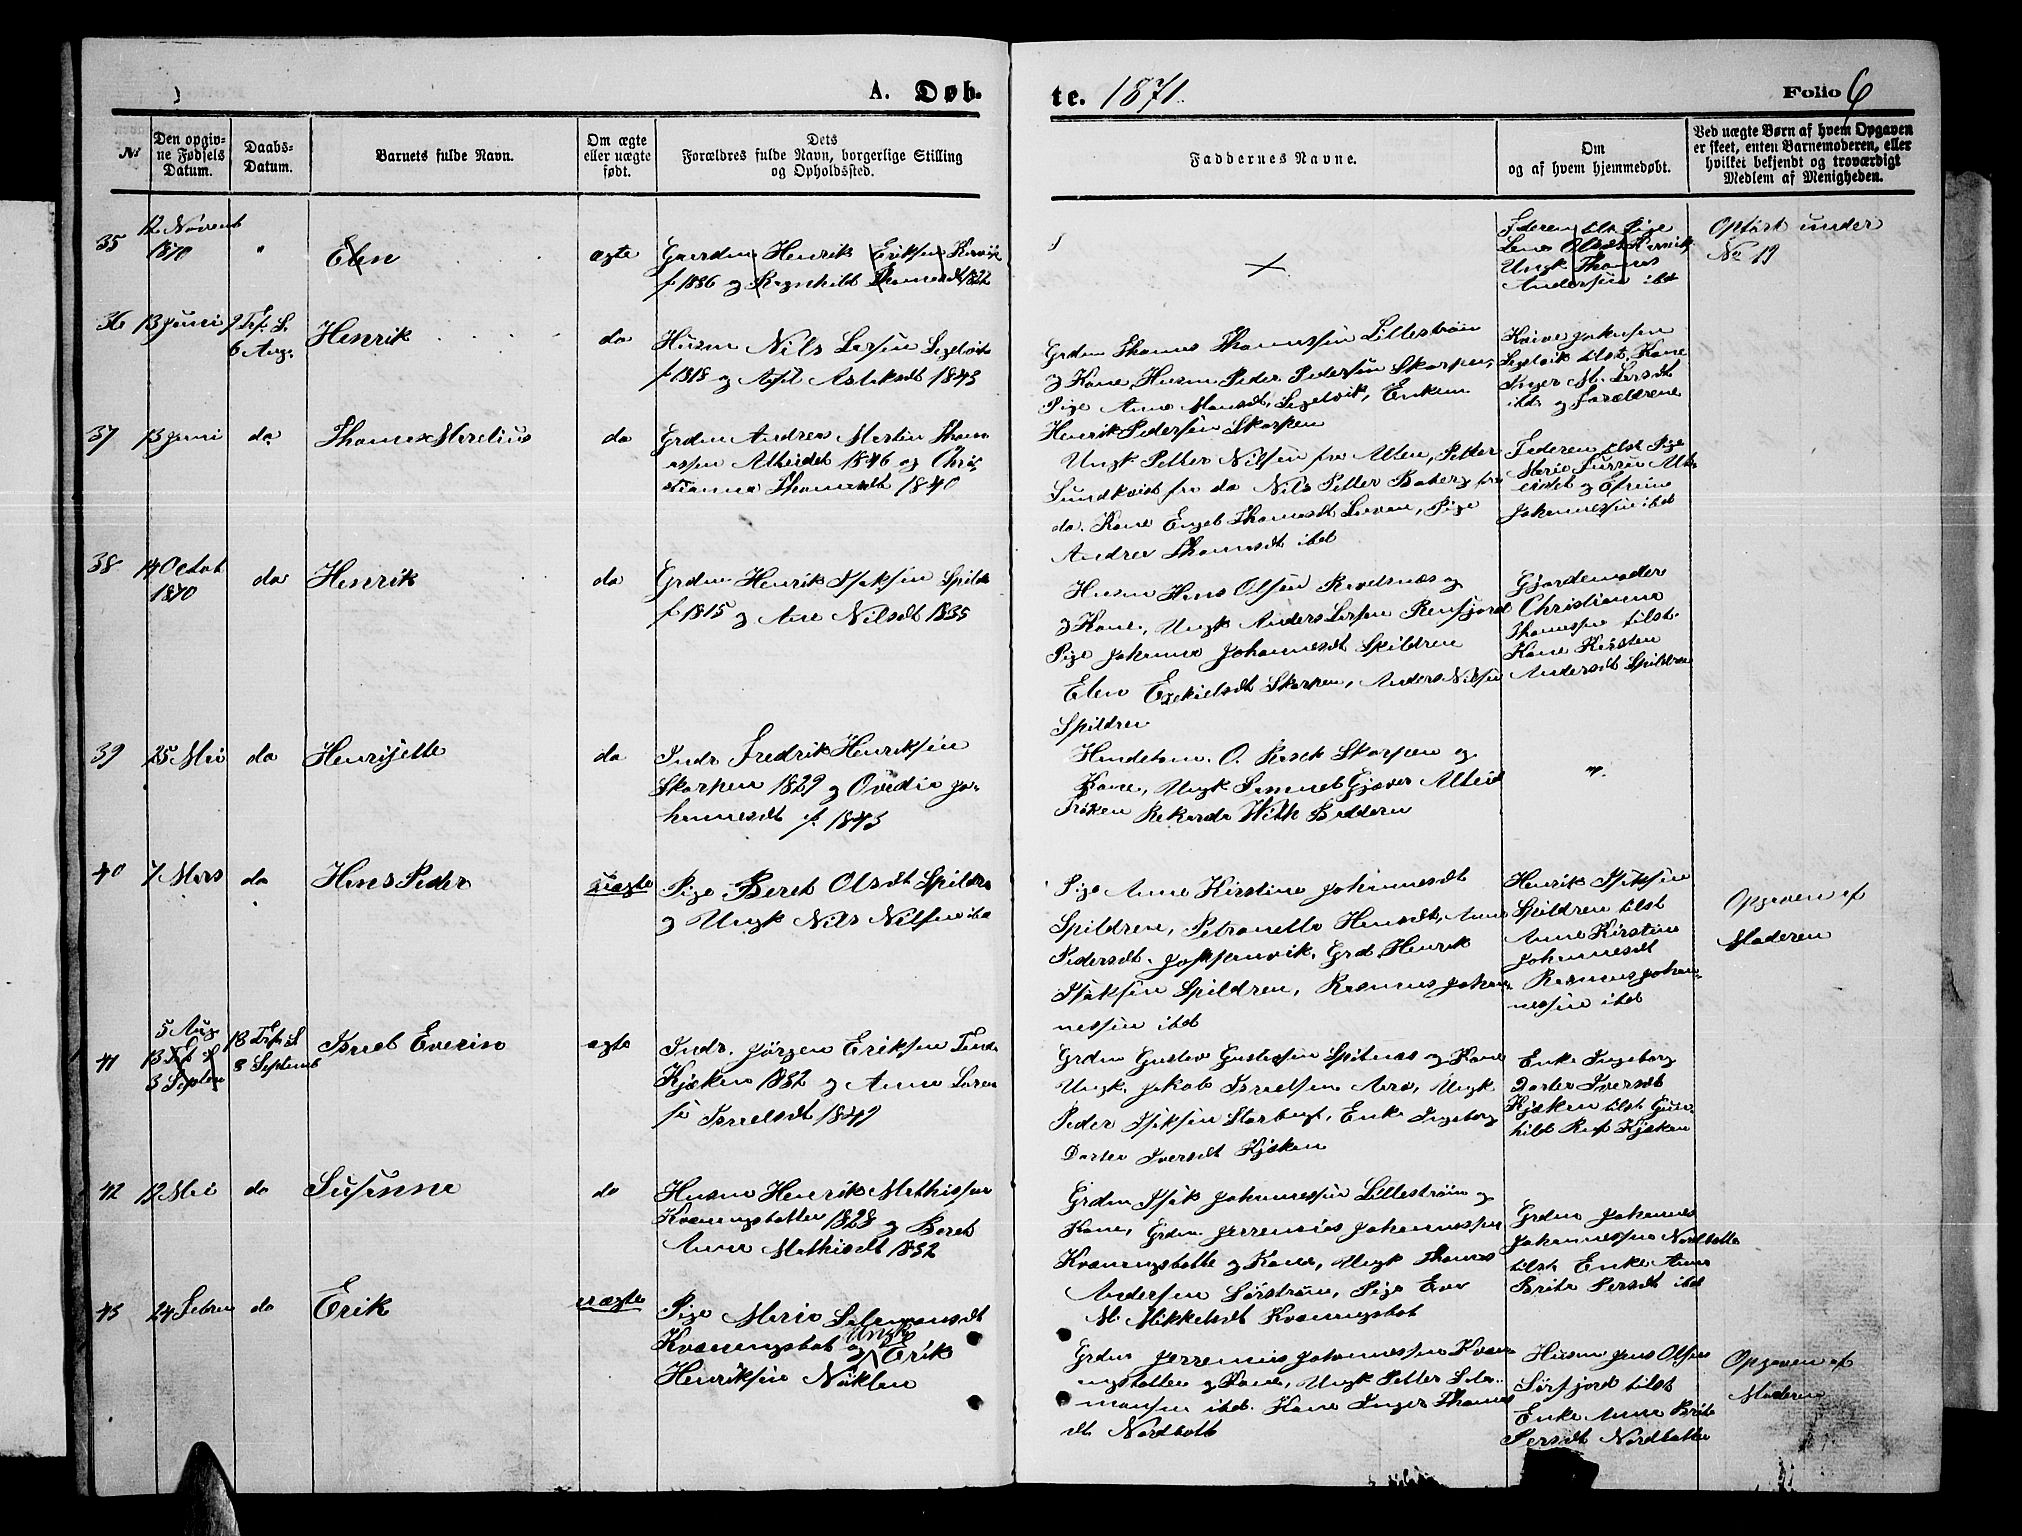 A. Døb.
te. 1871.
Folio 6
No
Den opgiv-
ne Fødsels
Datum.
Daabs-
Datum.
Barnets fulde Navn.
Om ægte
eller uægte
født.
Dets
Forældres fulde Navn, borgerlige Stilling
og Opholdssted.
Faddernes Navne.
Om
og af hvem hjemmedøbt.
Ved uægte Børn af hvem Opgaven
er skeet, enten Barnemoderen, eller
hvilket bekjendt og troværdigt
Medlem af Menigheden.
35
12 Novemb
1870
"
Elen
ægte
Gaardm Henrik Eriksen
f 1836 og Ragnhild Thomasdt 1822
Faderen tilst Pige
Lena Olsdt
Ungk Thomas
Andersen ibd
Opført under
No 19
36
13 Juni
9 Tref. S.
6 Aug.
Henrik
do
Husm Nils Larsen
f 1818 og Aslaksdt 1843
Grdm Thomas Thomassen Lillestrøm
og Kone, Husm Peder Pedersen Skorpen,
Pige Anne Monsdt, Segelvik, Enkem
Henrik Pedersen Skorpen
Segelvik tilst. Kone
Inger M. Larsdt
ibd og Forældrene
37
13 Juni
do
Thomas Marelius
do
Grdm Andrea Martin Thom
assen Alteidet 1846 og Chris
tianna Thomasdt 1840
Ungk Petter Nilsen fra Alten, Petter
Sundkvist fra do Nils Petter Boberg fra
do. Kone Engel Thomasdt, Pige
Andrea Thomasdt ibd
Faderen tilst Pige
Johannessen ibd
38
14 Octob
1870
do
Henrik
do
Grdm Henrik Isaksen Spildr
f. 1815 og Ane Nilsdt 1835
Husm Hans Olsen Ravelsnæs og
og Kone, Ungk Anders Larsen Rensfjord
Pige Johanna Johannesdt Spildren
Elen Ezekielsdt Skorpen, Anders Nilsen
Spildren
Gjordemoder
Christianna
Thomassen tilst.
Kone Kirsten
Andersdt Spildren
39
25 Mai
do
Henrijette
do
Indr Fredrik Henriksen
Skorpen 1829 og Ovedia Jo-
hannesdt f. 1843
Handelsm. O. Rasch Skorpen og
Kone, Ungk Gjæver Alteid
Frøken Rikarda With Badderen
"
40
7 Mars
do
Hans Peder
uægte
Pige Beret Olsdt Spildr
og Ungk Nils Nilsen ibd
Pige Anne Kirstine Johannesdt
Spildren, Petronella Hansdt, Anne
Pedersdt. Joppenvik, Grd Henrik
Isaksen Spildren, Rasmus Johan
nessen ibd
Henrik Isaksen
Spildren tilst
Anne Kirstine
Johannesdt
Rasmus Johan-
nessen ibd
Opgaven af
Moderen
41
5 Aug
3 Septem
13 Tref. S
8 Septemb
Israel Everin
ægte
Indr. Jørgen Eriksen
Kjækan 1832 og Anne
Israelsdt 1849
Grdm Gustav Gustavsen Spitnæs og Kone
Ungk. Jakob Israelsen, Ungk
Peder Isaksen Storbugt, Enke Ingeborg
Dortea Iversdt Kjækan
Enke Ingeborg
Dortea Iversdt
Kjækan tilst Gun-
hild Kjækan
42
12 Mai
do
Susanna
do
Husm Henrik Mathissen
Kvænangsbotten 1828 og Beret
Anne Mathisdt 1832
Grdm Isak Johannessen Lillestrøm og
Kone, Grdm. Jerremias Johannessen
Kvænangsbotte og Kone, Ungk Thomas
Andersen Sørstrøm, Pige Eva
M. Mikkelsdt Kvænangsbot
Grdm Johannes
Johannessen Nordbotte
tilst Enke Anne
Brita Persdt ibd
43
24 Febru
do
Erik
uægte
Pige Maria Salamonsdt
Kvænangsbot og Ungk Erik
Henriksen Nøklen
Grdm Jerremias Johannessen Kvæn
angsbotten og Kone, Ungk Petter Sala-
monsen ibd. Kone Inger Thomas
dt Nordbott
Husm Jens Olsen
Sørfjord tilst
Enke Anne Brita
Persdt Nordbotte
Opgaven af
Moderen